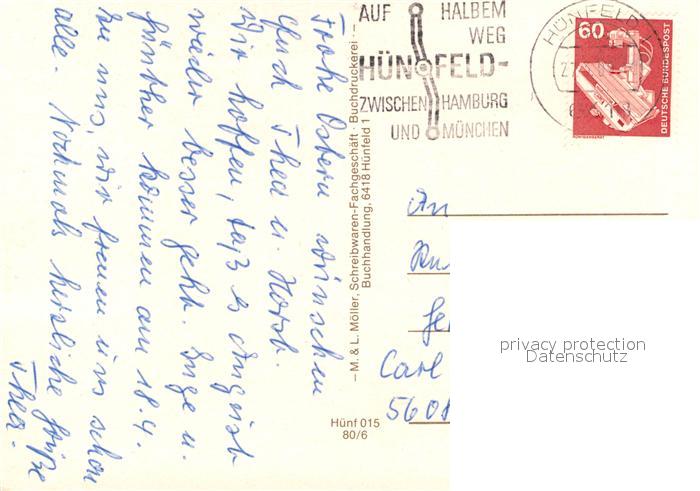 Frohe Ostern wünschen
Euch Thea u. Horst.
Wir hoffen, daß es August
wieder besser geht. Inge u.
Günther kommen am 18.4.
zu uns, wir freuen uns schon
alle. Nochmals herzliche Grüße
Thea.
– M. & L. Möller, Schreibwaren-Fachgeschäft · Buchdruckerei –
Buchhandlung, 6418 Hünfeld 1
AUF HALBEM
WEG
HÜNFELD-
ZWISCHEN HAMBURG
UND MÜNCHEN
HÜNFELD
60
DEUTSCHE BUNDESPOST
RÖNTGENGERÄT
An
Carl
5608
Hünf 015
80/6
privacy protection
Datenschutz